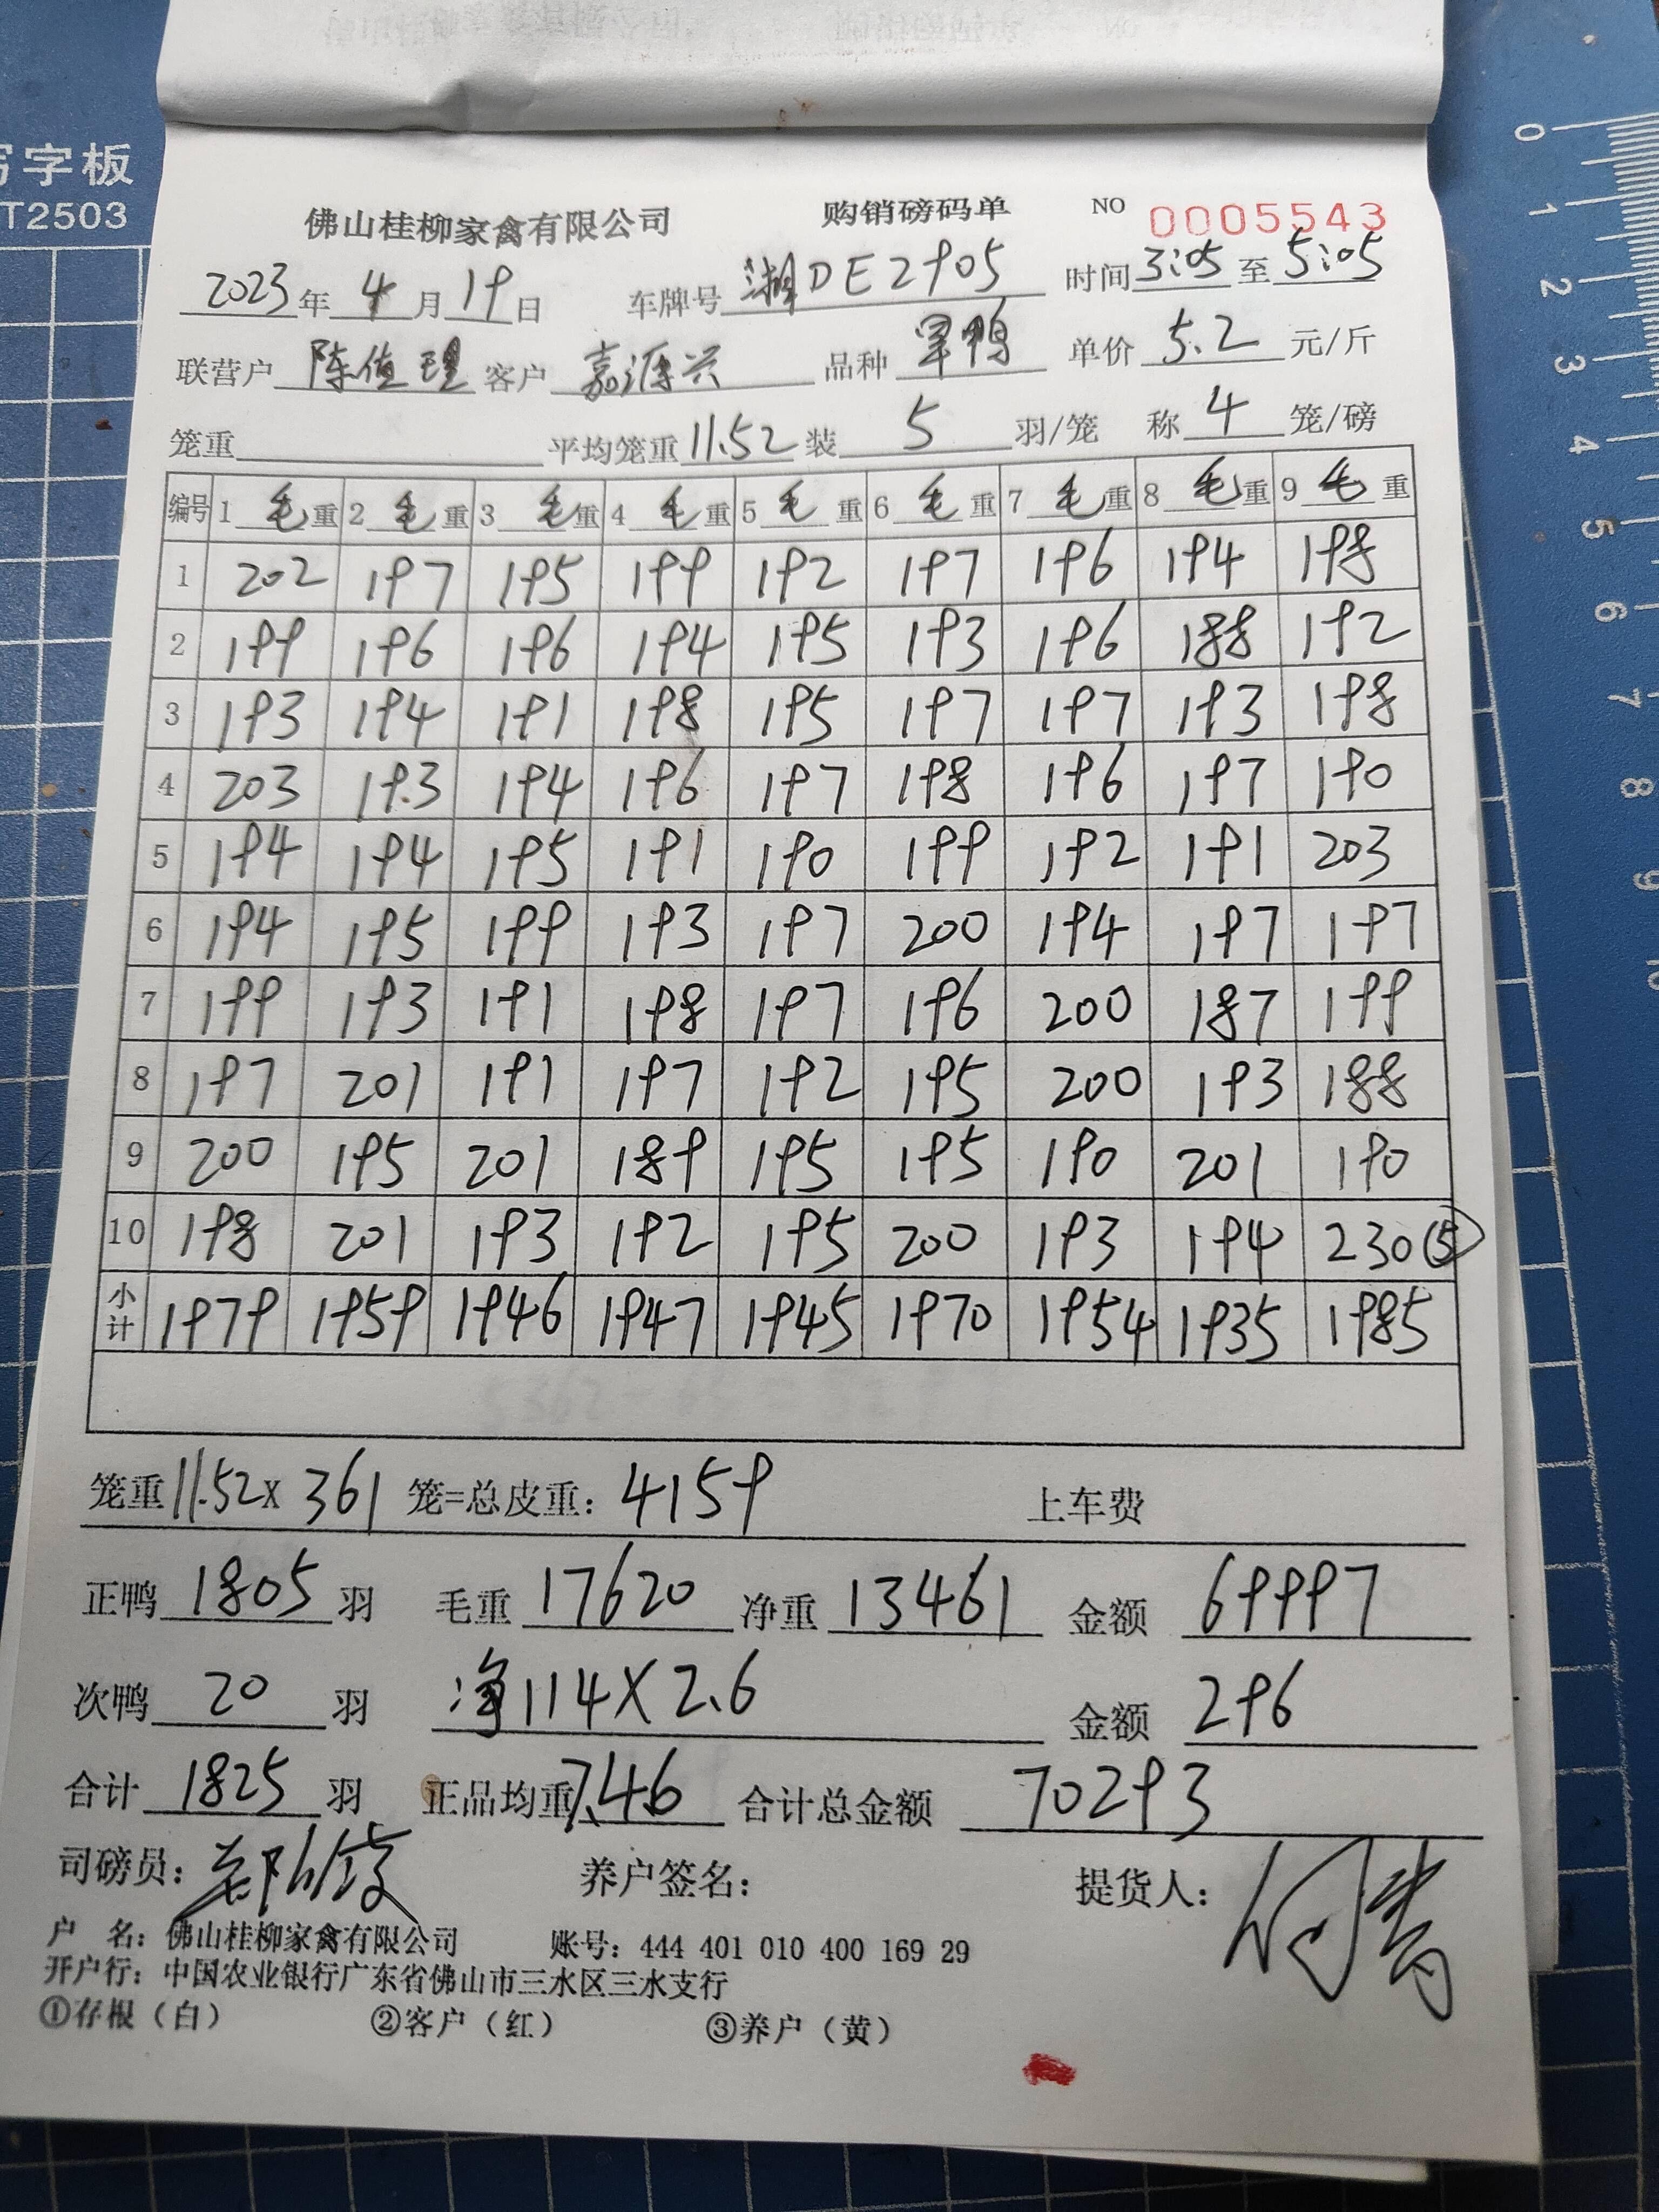 写字板
T2503
佛山桂柳家禽有限公司 购销磅码单 NO 0005543
2023年 4月19日 车牌号 湘DE2905 时间 3:05 至 5:05
联营户 陈值理 客户 嘉源兴 品种 旱鸭 单价 5.2 元/斤
笼重 平均笼重 11.52 装 5 羽/笼 称 4 笼/磅
编号 1 毛重 2 毛重 3 毛重 4 毛重 5 毛重 6 毛重 7 毛重 8 毛重 9 毛重
1 202 197 195 199 192 197 196 194 198
2 199 196 196 194 195 193 196 188 192
3 193 194 191 198 195 197 197 193 198
4 203 193 194 196 197 198 196 197 190
5 194 194 195 191 190 199 192 191 203
6 194 195 199 193 197 200 194 197 197
7 199 193 191 198 197 196 200 187 199
8 197 201 191 197 192 195 200 193 188
9 200 195 201 189 195 195 190 201 190
10 198 201 193 192 195 200 193 194 230⑤
小计 1979 1959 1946 1947 1945 1970 1954 1935 1985
笼重 11.52X 361 笼=总皮重: 4159 上车费
正鸭 1805 羽 毛重 17620 净重 13461 金额 69997
次鸭 20 羽 净114X2.6 金额 296
合计 1825 羽 正品均重 7.46 合计总金额 70293
司磅员: 养户签名: 提货人:
户 名: 佛山桂柳家禽有限公司 账号: 444 401 010 400 169 29
开户行: 中国农业银行广东省佛山市三水区三水支行
①存根（白） ②客户（红） ③养户（黄）
0
1
2
3
4
5
6
7
8
9
10